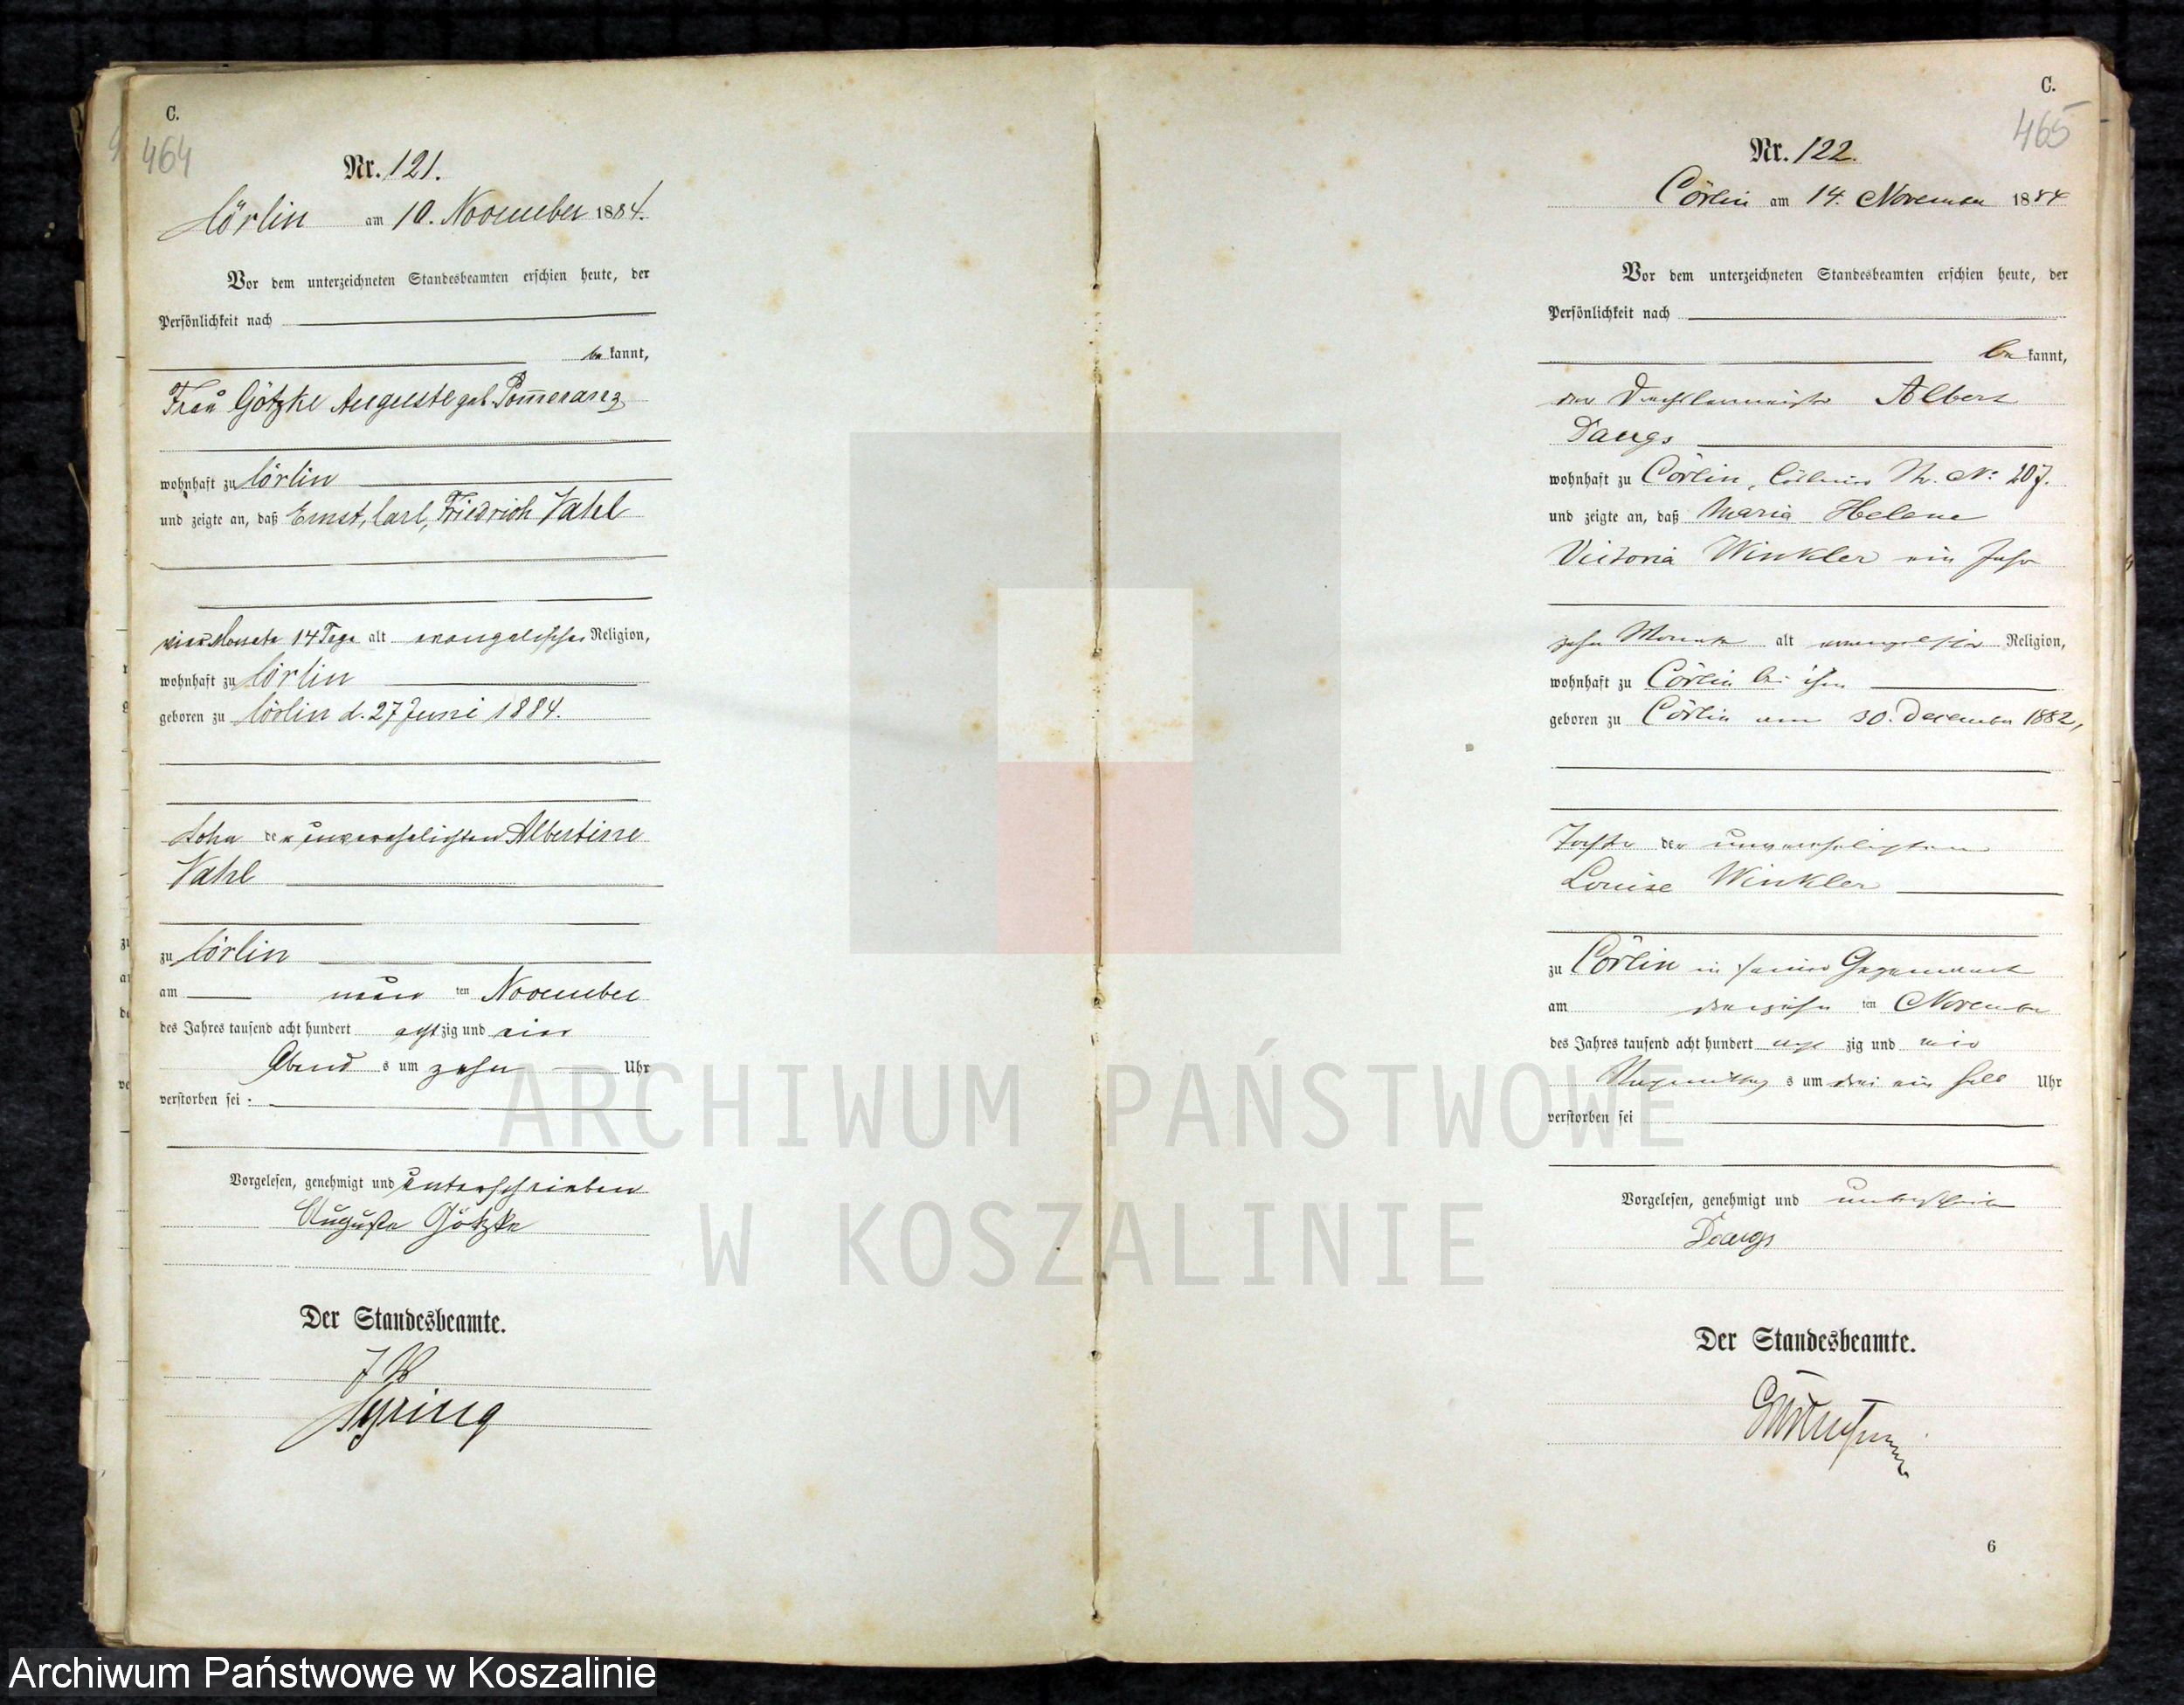 C.
464
Nr. 121.
Cörlin am 10. November 1884.
Vor dem unterzeichneten Standesbeamten erschien heute, der
Persönlichkeit nach
be kannt,
Frau Götzke Auguste geb. Pom̄eranz
wohnhaft zu Cörlin
und zeigte an, daß Ernst, Carl, Friedrich Vahl
vier Monate 14 Tage alt evangelischer Religion,
wohnhaft zu Cörlin
geboren zu Cörlin d. 27 Juni 1884.
Sohn der unverehelichten Albertine
Vahl
zu Cörlin
am neun ten November
des Jahres tausend acht hundert acht zig und vier
Abend s um zehn Uhr
verstorben sei :
Vorgelesen, genehmigt und unterschrieben
Auguste Götzke
Der Standesbeamte.
J V
Syring
C.
465
Nr. 122.
Cörlin am 14. November 1884
Vor dem unterzeichneten Standesbeamten erschien heute, der
Persönlichkeit nach
be kannt,
der Albert
Daugs
wohnhaft zu Cörlin, Cösliner Str. No: 207.
und zeigte an, daß Maria Helene
Victoria Winkler ein Jahr
zehn Monate alt evangelischer Religion,
wohnhaft zu Cörlin bei ihm
geboren zu Cörlin am 30. December 1882,
Tochter der unverehelichten
Louise Winkler
zu Cörlin in seiner Gegenwart
am dreizehn ten November
des Jahres tausend acht hundert acht zig und vier
Nachmittag s um drei ein halb Uhr
verstorben sei
Vorgelesen, genehmigt und unterschrieben
Daugs
Der Standesbeamte.
6
ARCHIWUM PAŃSTWOWE
W KOSZALINIE
Archiwum Państwowe w Koszalinie